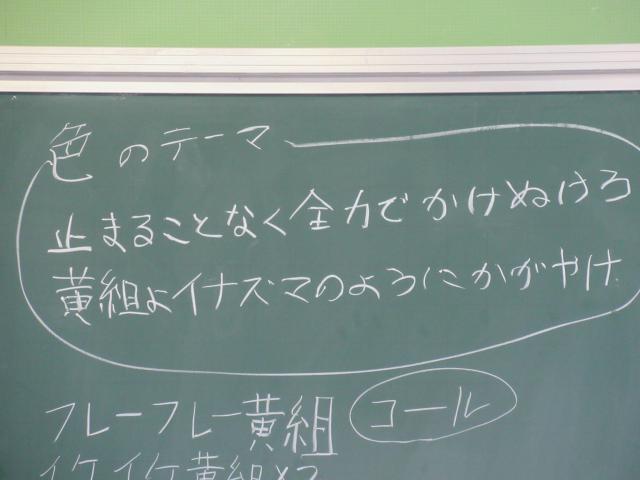 色のテーマ
止まることなく全力でかけぬけろ
黄組よイナズマのようにかがやけ
フレーフレー黄組 コール
イケイケ黄組×2